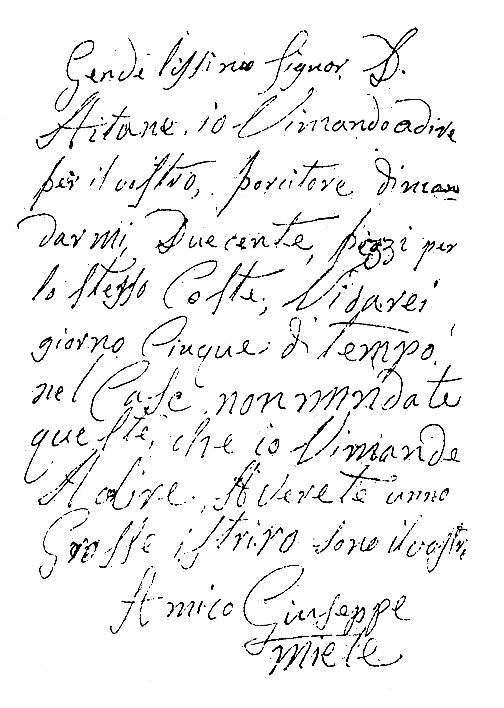 Gendilissimo Signor D.
Aitane. io Vimandoadire
per il vostro, porcitore diman
darmi, Duecente, pezzi per
lo stesso Coste, Vidarei
giorno, Cinque di tempo
nel Case nonmandate
queste, che io Vimande
Adire, Averete unno
Grosse istriro sono ilvostro
Amico Giuseppe
Miele